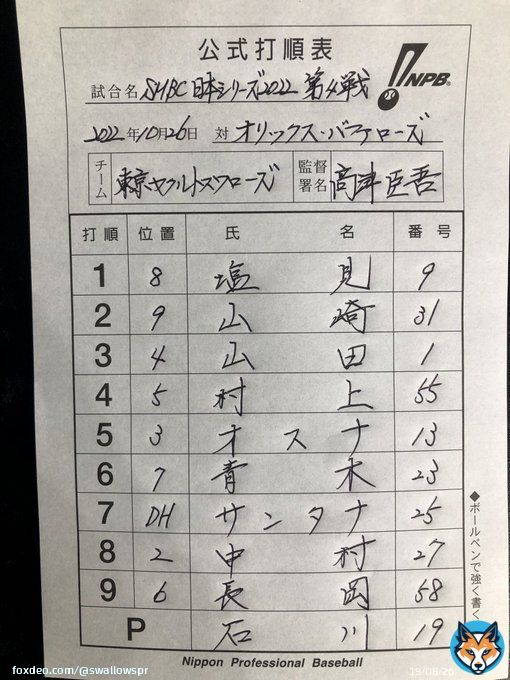 公式打順表
NPB®
試合名 SMBC日本シリーズ2022 第4戦
2022年10月26日 対 オリックス・バファローズ
チーム 東京ヤクルトスワローズ 監督署名 高津臣吾
打順 位置 氏名 番号
1 8 塩見 9
2 9 山崎 31
3 4 山田 1
4 5 村上 55
5 3 オスナ 13
6 7 青木 23
7 DH サンタナ 25
8 2 中村 27
9 6 長岡 58
P 石川 19
◆ボールペンで強く書く
Nippon Professional Baseball
foxdeo.com/@swallowspr